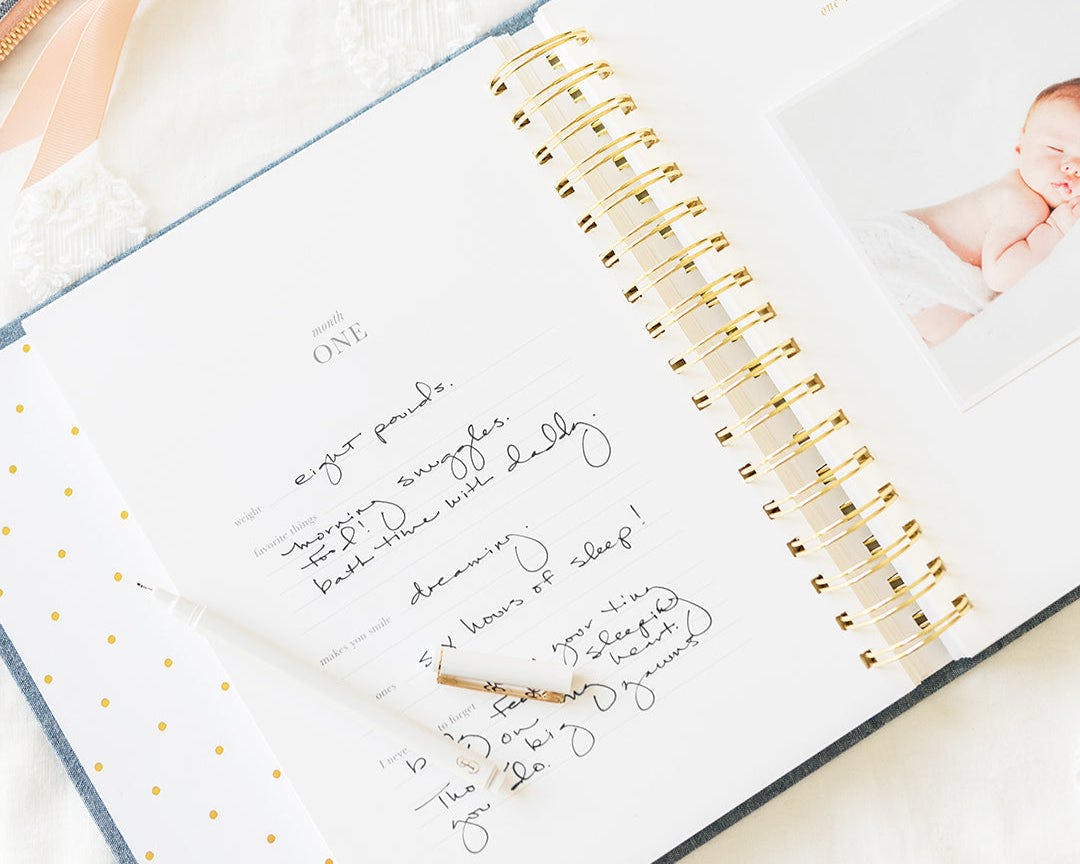 month
ONE
weight
eight pounds.
favorite things
morning snuggles.
food!
bath time with daddy.
makes you smile
dreaming.
six hours of sleep!
ones
I never to forget
your tiny
feet sleeping
on my heart.
big yawns
you do.
one